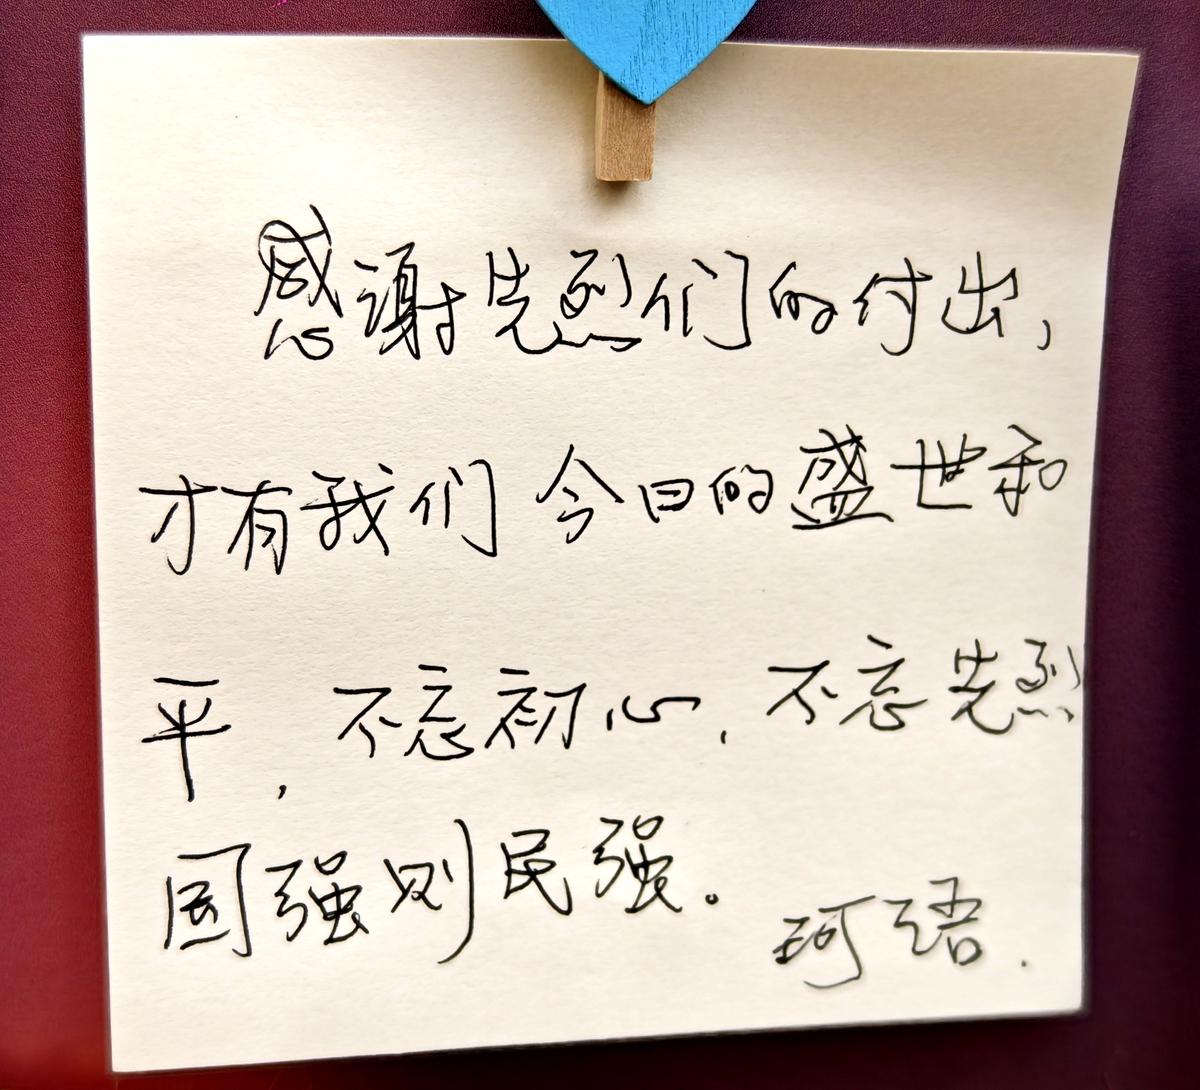 感谢先烈们的付出，
才有我们今日的盛世和
平，不忘初心，不忘先烈
国强则民强。
珂语.